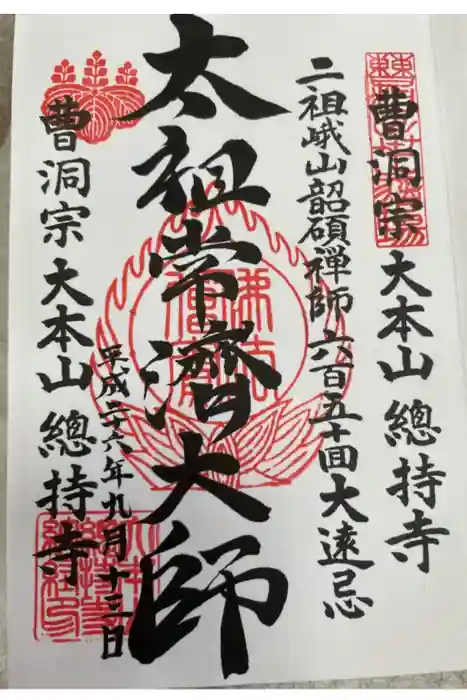 曹洞宗 大本山 總持寺
二祖峨山韶碩禅師 六百五十回 大遠忌
太祖常濟大師
平成二十六年九月十三日
曹洞宗 大本山 總持寺